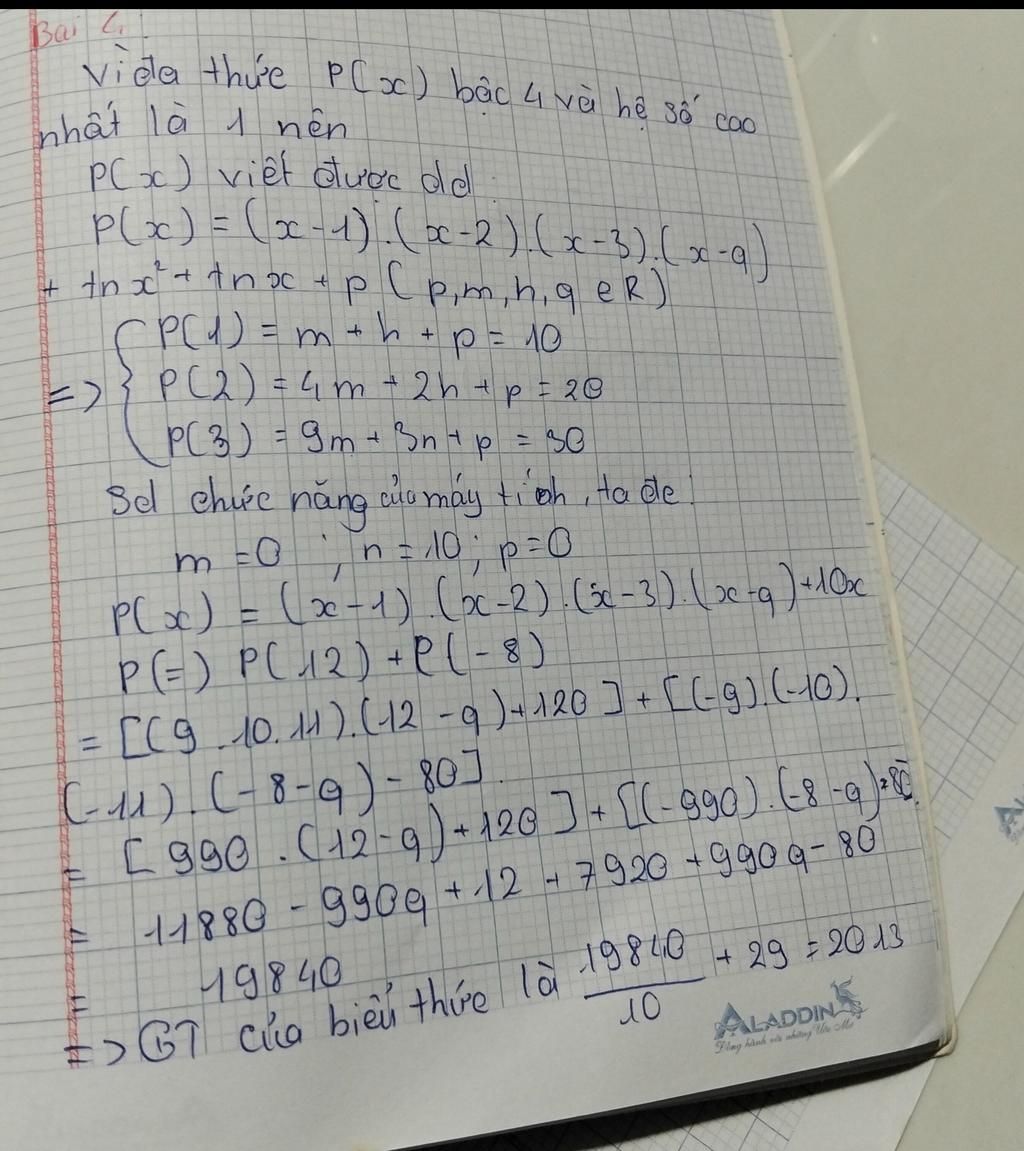 Bài 4
Vì đa thức P(x) bậc 4 và hệ số cao
nhất là 1 nên
P(x) viết được dd:
P(x) = (x-1).(x-2).(x-3).(x-q)
+ mx² + nx + p (p,m,n,q ∈ R)
=> { P(1) = m + n + p = 10
P(2) = 4m + 2n + p = 20
P(3) = 9m + 3n + p = 30
Sd chức năng của máy tính, ta đc:
m = 0 ; n = 10 ; p = 0
P(x) = (x-1).(x-2).(x-3).(x-q)+10x
P(=) P(12) + P(-8)
= [(9.10.11).(12-q)+120] + [(-9).(-10).
(-11).(-8-q)-80].
= [990.(12-q)+120] + [(-990).(-8-q)-80].
= 11880 - 990q + 12 + 7920 + 990q - 80
= 19840
=> GT của biểu thức là 19840/10 + 29 = 2013
ALADDIN
Đồng hành với những Ước Mơ